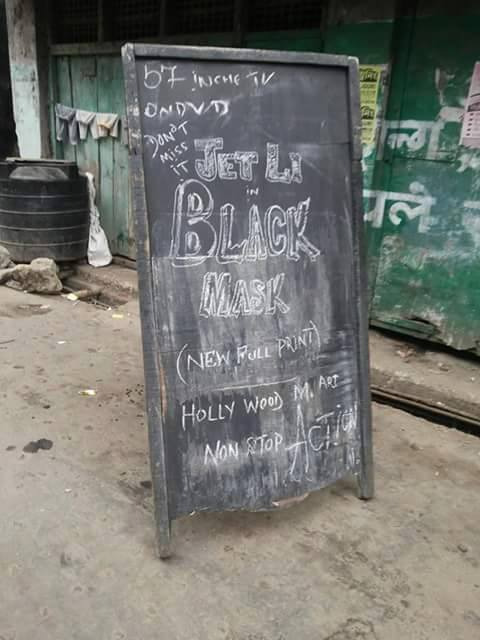 57 INCHE TV
ON DVD
DON'T
MISS
IT
JET LI
in
BLACK
MASK
(NEW FULL PRINT)
HOLLY WOOD M. ART
NON STOP ACTION